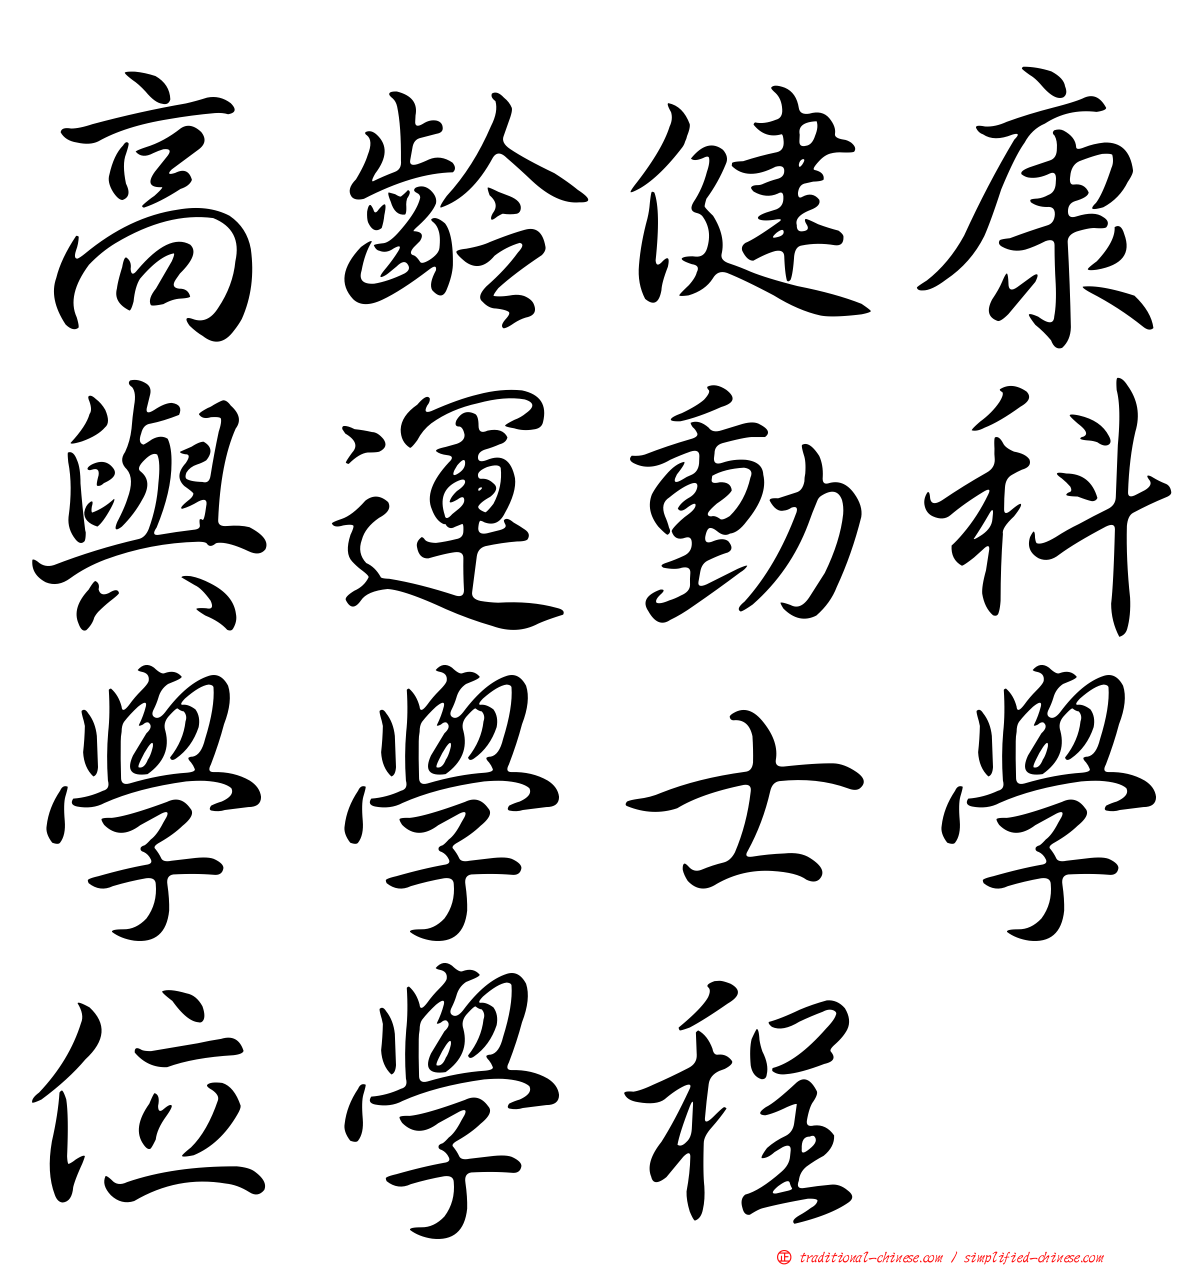 高齡健康
與運動科
學學士學
位學程
正 traditional-chinese.com / simplified-chinese.com